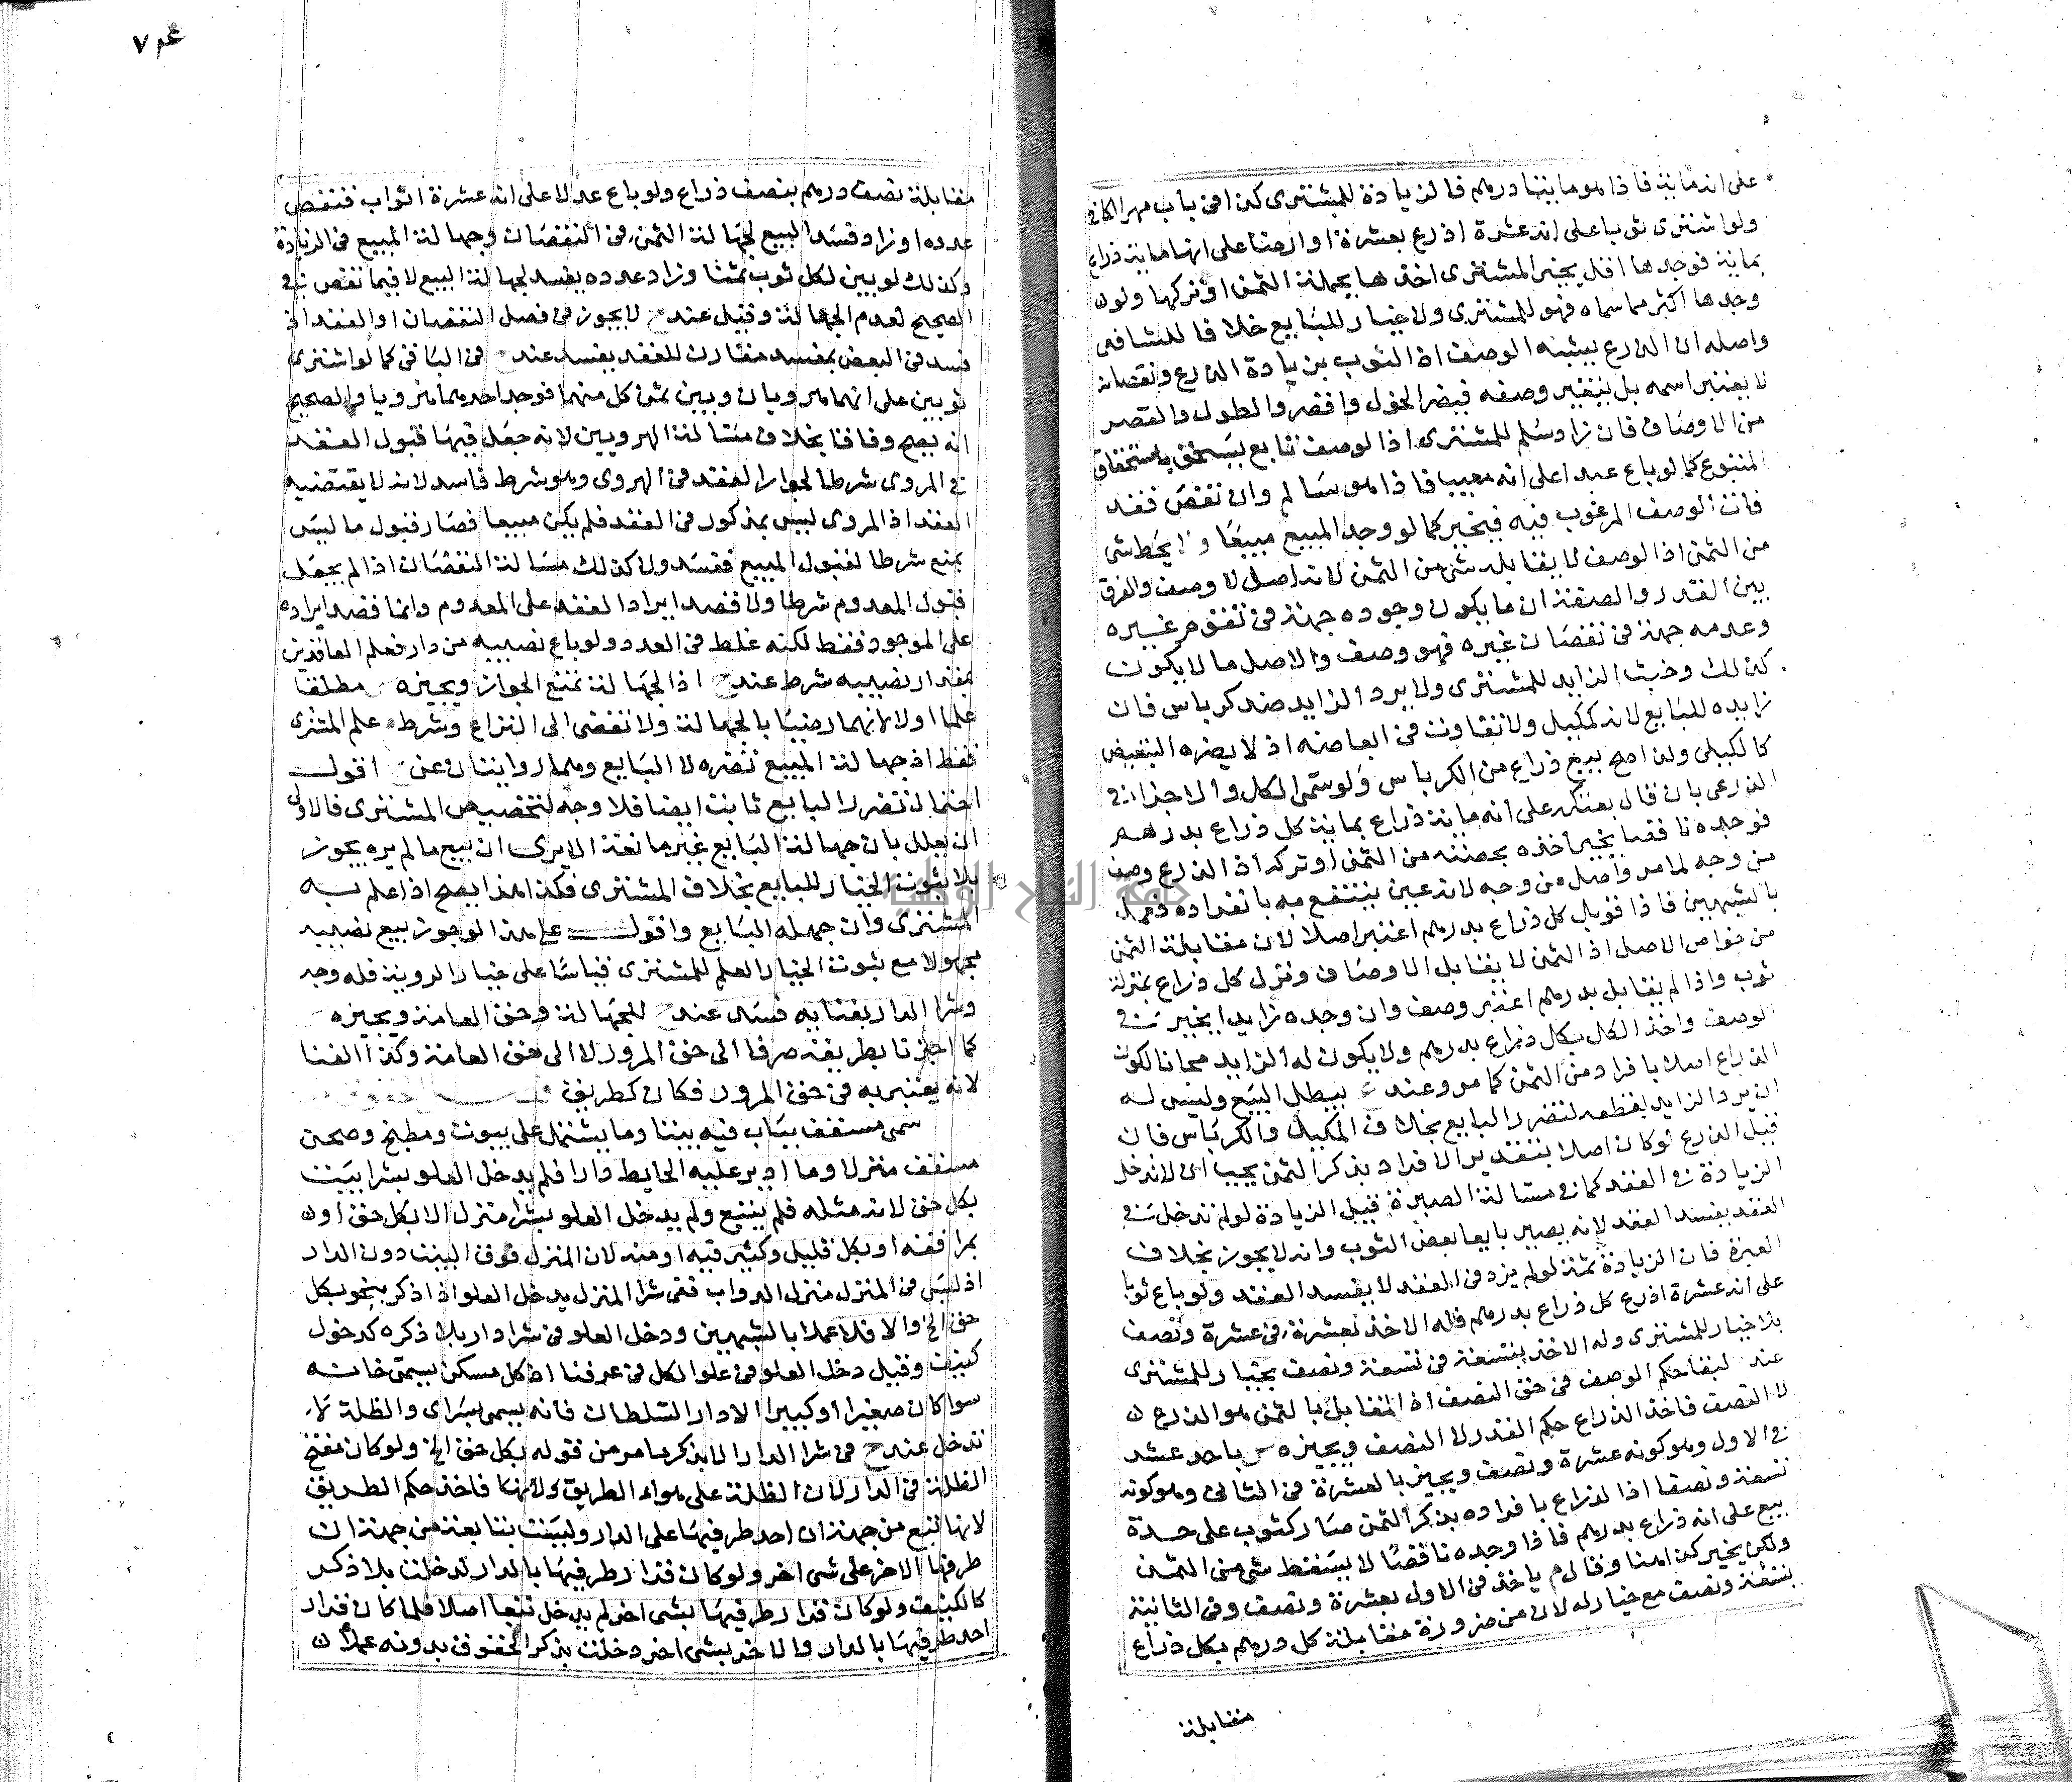 على انه مائة فاذا هو مائتا درهم فالزيادة للمشترى كذا فى باب مهر الكافى
ولو اشترى ثوبا على انه عشرة اذرع بعشرة او ارضا على انها مائة ذراع
بماية فوجدها اقل يخير المشترى اخذها بجملة الثمن او تركها ولو
وجدها اكثر مما سماه فهو للمشترى ولا خيار للبايع خلافا للشافعى
واصله ان الذرع يشبه الوصف اذ الثوب بزيادة الذرع ونقصانه
لا يتغير اسمه بل يتغير وصفه فيصر والطول والقصر
من الاوصاف فان زاد سلم للمشترى اذ الوصف تابع يستحق باستحقاق
المتبوع كما لو باع عبدا على انه معيب فاذا هو سالم وان نقص فقد
فات الوصف المرغوب فيه فيخير كما لو وجد المبيع معيبا ولا يحط شى
من الثمن اذ الوصف لا يقابله شى من الثمن لانه اصل لا وصف والفرق
بين القدر والصفة ان ما يكون وجوده جهة فى تقوم غيره
وعدمه جهة فى نقصان غيره فهو وصف والاصل ما لا يكون
كذلك وخبث الزايد للمشترى ولا يرد الزايد ضد كرباس فان
زايده للبايع لانه كمكيل ولا تفاوت فى ابعاضه اذ لا يضره التبعيض
كالكيلى ولذا صح بيع ذراع من الكرباس ولو سمى الكل والاجزا فى
الذرعى بان قال بعتكه على انه مائة ذراع بماية كل ذراع بدرهم
فوجده ناقصا يخير اخذه بحصته من الثمن او تركه اذ الذرع وصف
من وجه لما مر واصل من وجه لانه عين ينتفع به بانفراده فعمل
بالشبهين فاذا قوبل كل ذراع بدرهم اعتبر اصلا لان مقابلة الثمن
من خواص الاصل اذ الثمن لا يقابل الاوصاف ونزل كل ذراع بمنزلة
ثوب واذا لم يقابل بدرهم اعتبر وصف وان وجده زايدا يخير فى
الوصف واخذ الكل بكل ذراع بدرهم ولا يكون له الزايد مجانا لكون
الذراع اصلا بافراد من الثمن كما مر وعند يبطل البيع وليس له
ان يرد الزايد بقطعه لتضرر البايع بخلاف المكيل والكرباس فان
قيل الذرع لو كان اصلا بتقدير الافراد بذكر الثمن يجب ان لا تدخل
الزيادة فى العقد كما فى مسالة الصبرة قيل الزيادة لو لم تدخل فى
العقد يفسد العقد لانه يصير بايعا بعض الثوب وانه لا يجوز بخلاف
الصبرة فان الزيادة ثمة لو لم يزد فى العقد لا يفسد العقد ولو باع ثوبا
على انه عشرة اذرع كل ذراع بدرهم فله الاخذ بعشرة فى عشرة ونصف
بلا خيار للمشترى وله الاخذ بتسعة فى تسعة ونصف بخيار للمشترى
عند لبقا حكم الوصف فى حق النصف اذ المقابل بالثمن هو الذرع
لا النصف فاخذ الذراع حكم القدر لا النصف ويجيزه س باحد عشر
فى الاول وهو كونه عشرة ونصف ويجيز بالعشرة فى الثانى وهو كونه
تسعة ونصفا اذ الذراع بافراده بذكر الثمن صار كثوب على حدة
بيع على انه ذراع بدرهم فاذا وجده ناقصا لا يسقط شى من الثمن
ولكن يخير كذا هنا وقال م ياخذ فى الاول بعشرة ونصف وفى الثانية
بتسعة ونصف مع خيار له لان من ضرورة مقابلة كل درهم بكل ذراع
مقابلة
عم ٧
مقابلة نصف درهم بنصف ذراع ولو باع عدلا على انه عشرة اثواب فنقص
عدده او زاد فسد البيع لجهالة الثمن فى النقصان وجهالة المبيع فى الزيادة
وكذلك لو بين لكل ثوب ثمنا وزاد عدده يفسد لجهالة البيع لا فيما نقص فى
الصحيح لعدم الجهالة وقيل عند ح لا يجوز فى فصل النقصان اذ العقد اذا
فسد فى البعض بمفسد مقارن للعقد يفسد عند ح فى الباقى كما لو اشترى
ثوبين على انهما هرويان وبين ثمن كل منهما فوجد احدهما مرويا والصحيح
انه يصح وفاقا بخلاف مسالة الهرويين لانه جعل فيها قبول العقد
فى المروى شرطا لجواز العقد فى الهروى وهو شرط فاسد لانه لا يقتضيه
العقد اذ المروى ليس بمذكور فى العقد فلم يكن مبيعا فصار قبول ما ليس
بمبيع شرطا لقبول المبيع ففسد ولا كذلك مسالة النقصان اذ لم يجعل
قبول المعدوم شرطا ولا قصد ايراد العقد على المعدوم وانما قصد ايراده
على الموجود فقط لكنه غلط فى العدد ولو باع نصيبه من دار فعلم العاقدين
بمقدار نصيبه شرط عند ح اذ الجهالة تمنع الجواز ويجيزه س مطلقا
علما اولا لانهما رضيا بالجهالة ولا تفضى الى النزاع وشرط م علم المشترى
فقط اذ جهالة المبيع تضره لا البايع وهما روايتان عن ح اقول
احتمال تضرر البايع ثابت ايضا فلا وجه لتخصيص المشترى فالاولى
ان يعلل بان جهالة البايع غير مانعة الا يرى ان بيع ما لم يره يجوز
بلا ثبوت الخيار للبايع بخلاف المشترى فكذا هذا يصح اذا علم به
المشترى وان جهله البايع واقول على هذا لو جوز بيع نصيبه
مجهولا مع ثبوت الخيار العلم للمشترى قياسا على خيار الروية فله وجه
وشرا الدار بفنايه فسد عند ح للجهالة وحق العامة ويجيزه
كما اجزنا بطريقه صرفا الى حق المرور لا الى حق العامة وكذا الفنا
لانه يعتبر به فى حق المرور فكان كطريق
سمى مسقف بباب فيه بيتا وما يشتمل على بيوت ومطبخ وصحن
مسقف منزلا وما ادير عليه الحايط دارا فلم يدخل العلو بشرا بيت
بكل حق لانه مثله فلم يتبع ولم يدخل العلو بشرا منزل الا بكل حق او
بمرافقه او بكل قليل وكثير فيه او منه لان المنزل فوق البيت دون الدار
اذ ليس فى المنزل منزل الدواب ففى شرا المنزل يدخل العلو اذا ذكر بنحو بكل
حق الخ والا فلا عملا بالشبهين ودخل العلو فى شرا دار بلا ذكره كدخول
كنيف وقيل دخل العلو فى علو الكل فى عرفنا اذ كل مسكن يسمى خانه
سوا كان صغيرا او كبيرا الا دار السلطان فانه يسمى سراى والظلة لا
تدخل عند ح فى شرا الدار الا بذكر ما مر من قوله بكل حق الخ ولو كان مفتح
الظلة فى الدار لان الظلة على هواء الطريق فاخذ حكم الطريق
لانها تبع من جهة ان احد طرفيها على الدار وليست بتابعة من جهة ان
طرفها الاخر على شى اخر ولو كان قرار طرفيها بالدار تدخلت بلا ذكر
كالكنيف ولو كان قرار طرفيها بشى اخر لم يدخل تبعا اصلا فلما كان قرار
احد طرفيها بالدار والاخر بشى اخر دخلت بذكر الحقوق بدونه عملا